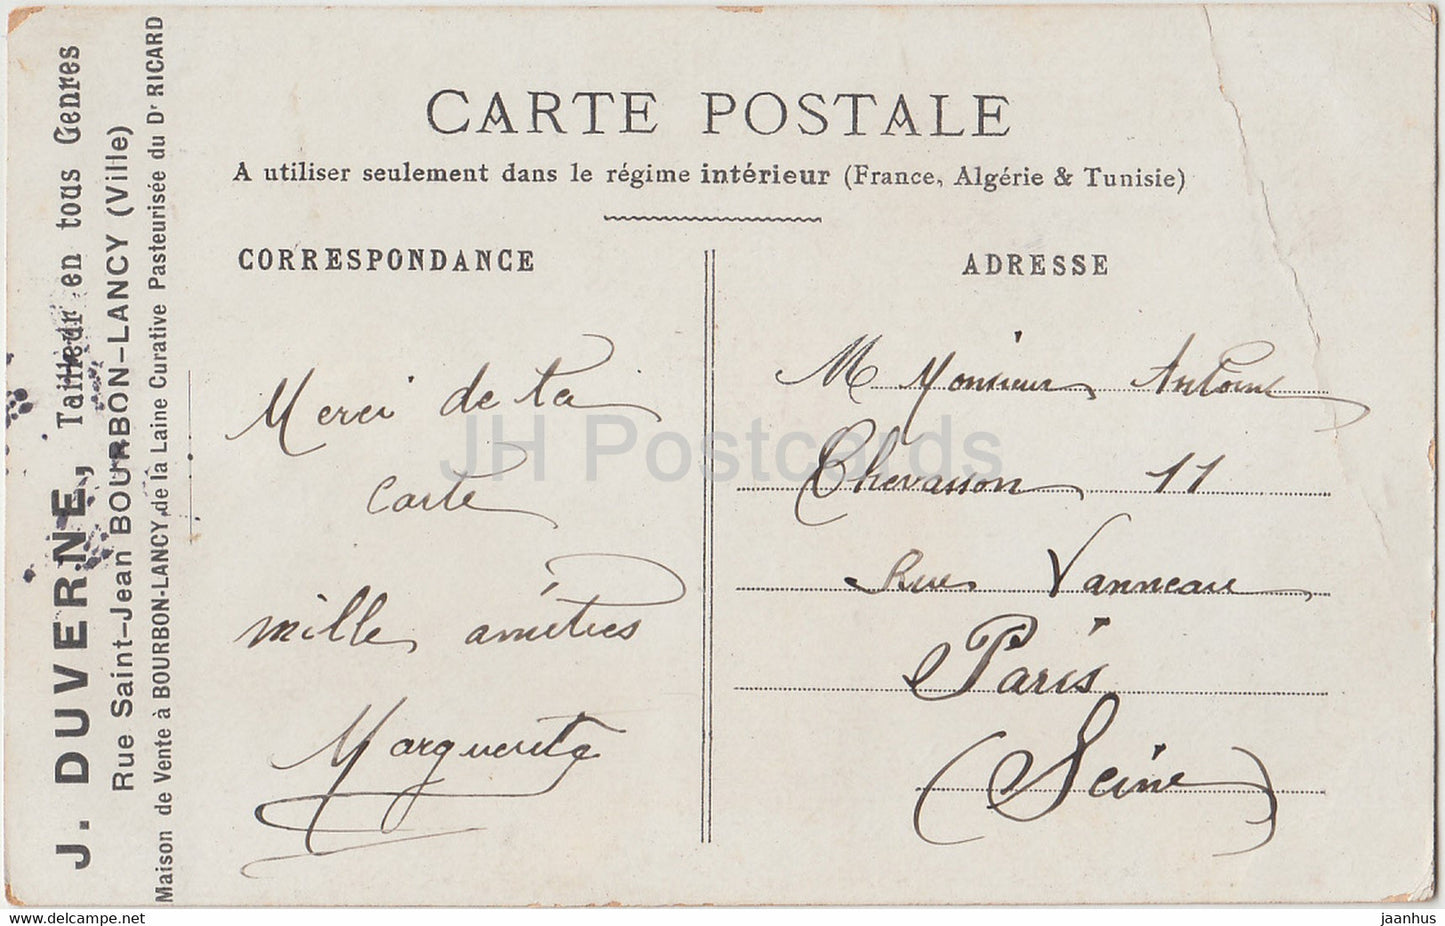 CARTE POSTALE
A utiliser seulement dans le régime intérieur (France, Algérie & Tunisie)
J. DUVERNE, Tailleur en tous Genres
Rue Saint-Jean BOURBON-LANCY (Ville)
Maison de Vente à BOURBON-LANCY, de la Laine Curative Pasteurisée du Dr RICARD
CORRESPONDANCE
Merci de ta
carte
mille amitiés
Marguerite
ADRESSE
M Monsieur Antoine
Chevasson 11
Rue Vanneau
Paris
(Seine)
JH Postcards
www.delcampe.net
jaanhus